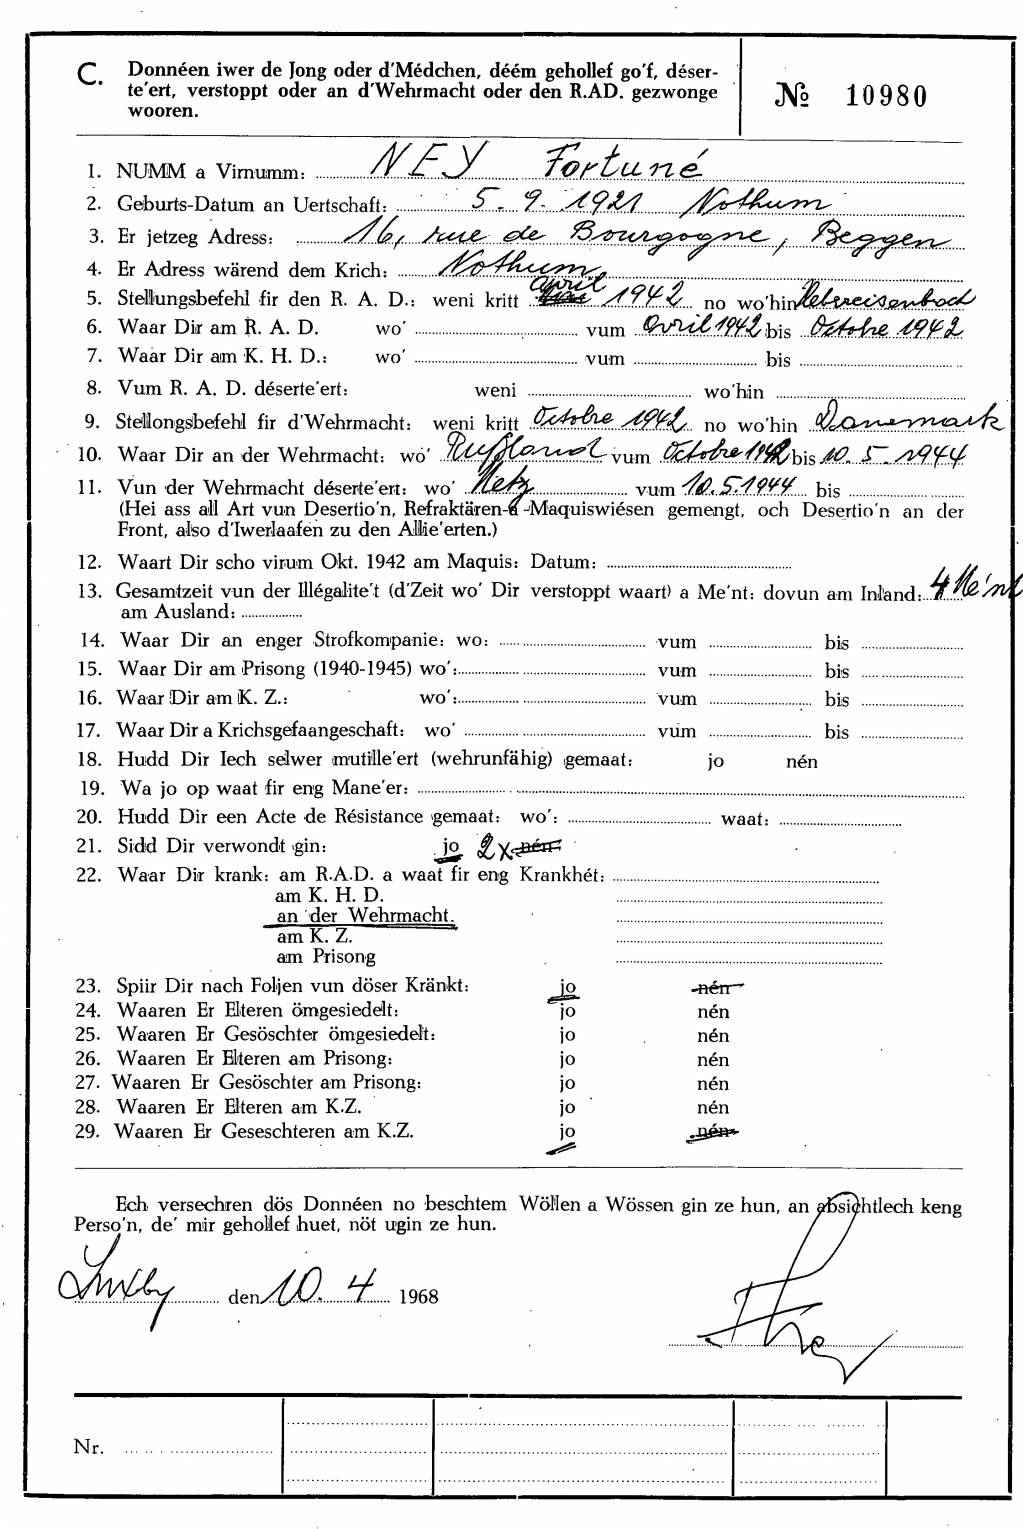 C. Donnéen iwer de Jong oder d'Médchen, déém gehollef go'f, déser-
te'ert, verstoppt oder an d'Wehrmacht oder den R.AD. gezwonge
wooren.
№ 10980
1. NUMM a Virnumm: NEY Fortuné
2. Geburts-Datum an Uertschaft: 5. 9. 1921 Nothum
3. Er jetzeg Adress: 16, rue de Bourgogne, Beggen
4. Er Adress wärend dem Krich: Nothum
5. Stellungsbefehl fir den R. A. D.: weni kritt April 1942 no wo'hin Uebereisenbach
6. Waar Dir am R. A. D. wo' vum Avril 1942 bis Octobre 1942
7. Waar Dir am K. H. D.: wo' vum bis
8. Vum R. A. D. déserte'ert: weni wo'hin
9. Stellongsbefehl fir d'Wehrmacht: weni kritt Octobre 1942 no wo'hin Danemark
10. Waar Dir an der Wehrmacht: wo' Rußland vum Octobre 1942 bis 10. 5. 1944
11. Vun der Wehrmacht déserte'ert: wo' Metz vum 10.5.1944 bis
(Hei ass all Art vun Desertio'n, Refraktären- & -Maquiswiésen gemengt, och Desertio'n an der
Front, also d'Iwerlaafen zu den Allie'erten.)
12. Waart Dir scho virum Okt. 1942 am Maquis: Datum:
13. Gesamtzeit vun der Illégalite't (d'Zeit wo' Dir verstoppt waart) a Me'nt: dovun am Inland: 4 Me'nt
am Ausland:
14. Waar Dir an enger Strofkompanie: wo: vum bis
15. Waar Dir am Prisong (1940-1945) wo': vum bis
16. Waar Dir am K. Z.: wo': vum bis
17. Waar Dir a Krichsgefaangeschaft: wo' vum bis
18. Hudd Dir Iech selwer mutille'ert (wehrunfähig) gemaat: jo nén
19. Wa jo op waat fir eng Mane'er:
20. Hudd Dir een Acte de Résistance gemaat: wo': waat:
21. Sidd Dir verwondt gin: jo 2x nén
22. Waar Dir krank: am R.A.D. a waat fir eng Krankhét:
am K. H. D.
an der Wehrmacht.
am K. Z.
am Prisong
23. Spiir Dir nach Foljen vun döser Kränkt: jo nén
24. Waaren Er Elteren ömgesiedelt: jo nén
25. Waaren Er Gesöschter ömgesiedelt: jo nén
26. Waaren Er Elteren am Prisong: jo nén
27. Waaren Er Gesöschter am Prisong: jo nén
28. Waaren Er Elteren am K.Z. jo nén
29. Waaren Er Geseschteren am K.Z. jo nén
Ech versechren dös Donnéen no beschtem Wöllen a Wössen gin ze hun, an absichtlech keng
Perso'n, de' mir gehollef huet, nöt ugin ze hun.
Luxbg den 10. 4 1968
Nr.